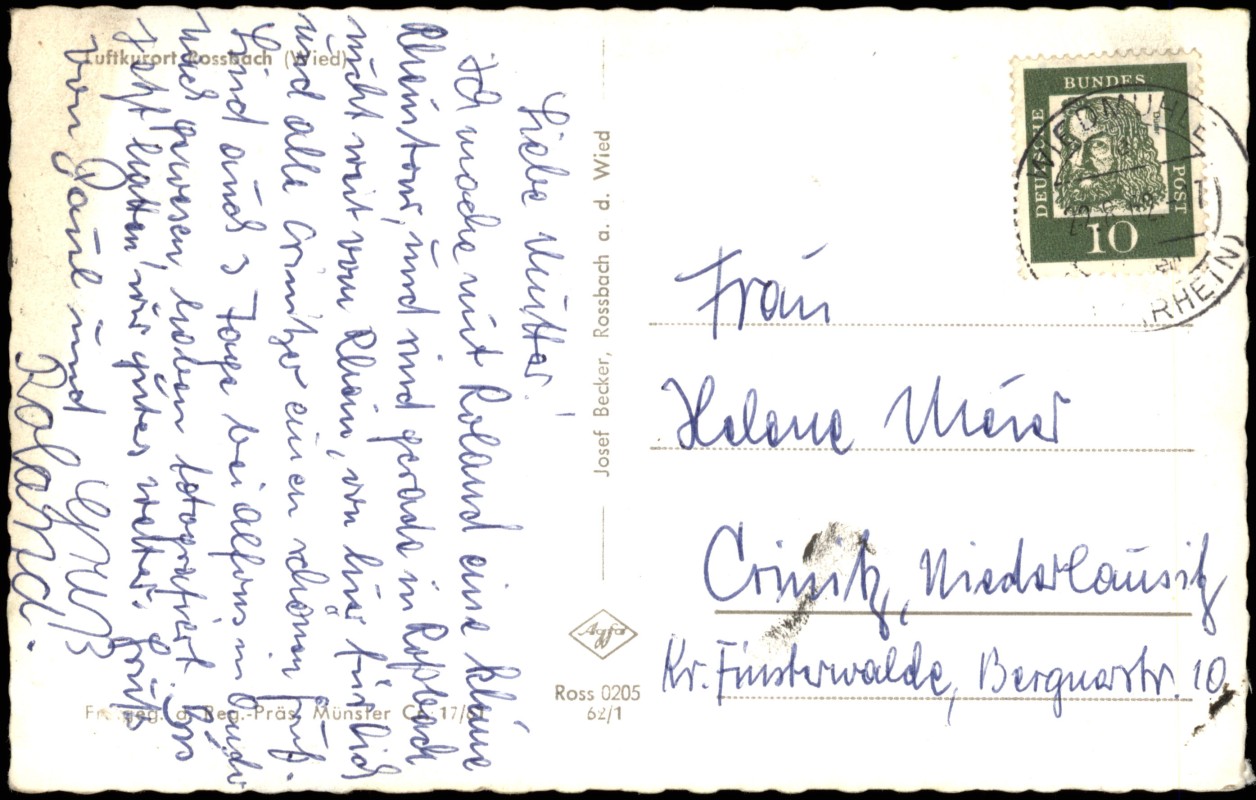 Luftkurort Rossbach (Wied)
Liebe Mutter!
Ich mache mit Roland eine kleine
Rheintour, und sind gerade in Roßbach
nicht weit vom Rhein, von hier für Dich
und alle Crinitzer einen schönen Gruß.
Sind auch 3 Tage bei Alfons
gewesen haben fotografiert. Bis
jetzt hatten wir gutes Wetter. Grüße
von Paul und Gruß
Roland.
Josef Becker, Rossbach a. d. Wied
Agfa
Ross 0205
62/1
Freigeg. d. Reg.-Präs. Münster
DEUTSCHE BUNDESPOST
10
WIEDMÜHLE
RHEIN)
Frau
Helene Meier
Crinitz, Niederlausitz
Kr. Finsterwalde, Bergnerstr. 10